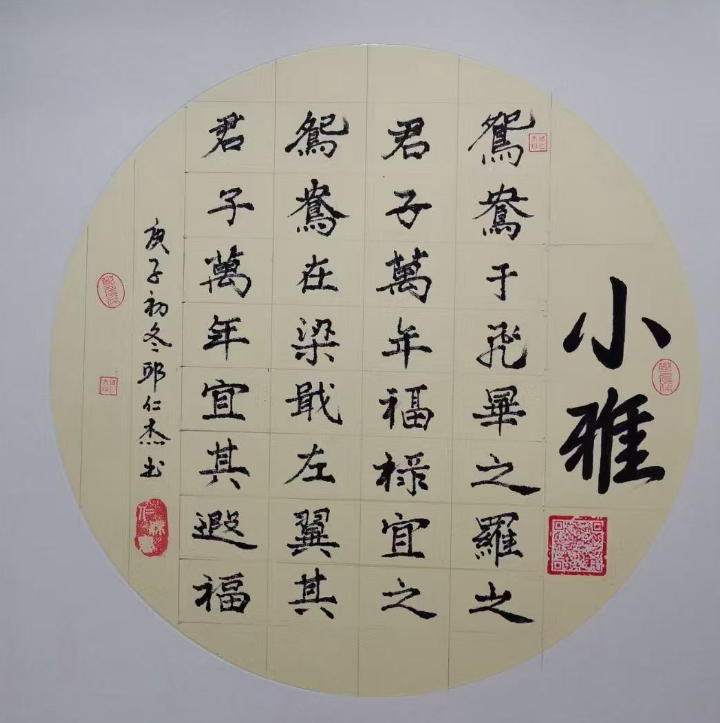 小雅
鴛鴦于飛畢之羅之
君子萬年福禄宜之
鴛鴦在梁戢左翼其
君子萬年宜其遐福
庚子初冬邱仁杰书